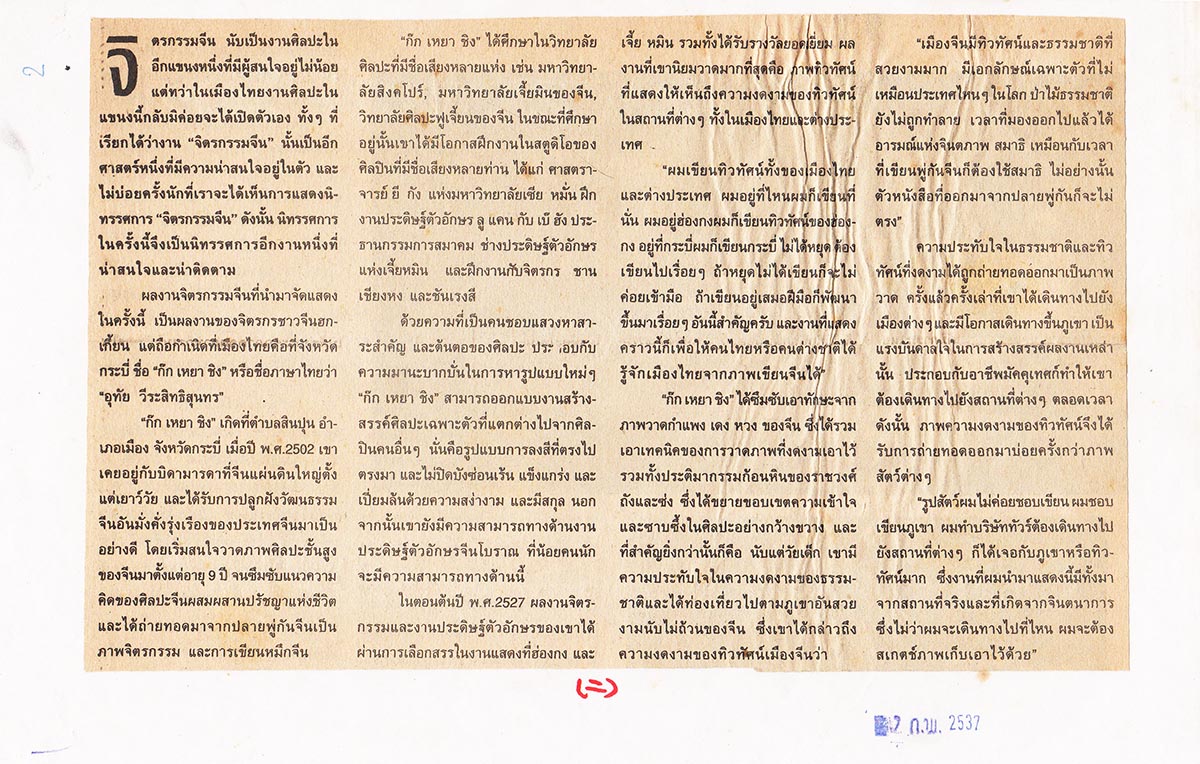 จิตรกรรมจีน นับเป็นงานศิลปะใน
อีกแขนงหนึ่งที่มีผู้สนใจอยู่ไม่น้อย
แต่ทว่าในเมืองไทยงานศิลปะใน
แขนงนี้กลับมิค่อยจะได้เปิดตัวเอง ทั้งๆ ที่
เรียกได้ว่างาน “จิตรกรรมจีน” นั้นเป็นอีก
ศาสตร์หนึ่งที่มีความน่าสนใจอยู่ในตัว และ
ไม่บ่อยครั้งนักที่เราจะได้เห็นการแสดงนิ-
ทรรศการ “จิตรกรรมจีน” ดังนั้น นิทรรศการ
ในครั้งนี้จึงเป็นนิทรรศการอีกงานหนึ่งที่
น่าสนใจและน่าติดตาม
ผลงานจิตรกรรมจีนที่นำมาจัดแสดง
ในครั้งนี้ เป็นผลงานของจิตรกรชาวจีนฮก-
เกี้ยน แต่ถือกำเนิดที่เมืองไทยคือที่จังหวัด
กระบี่ ชื่อ “ก๊ก เหยา ชิง” หรือชื่อภาษาไทยว่า
“อุทัย วีระสิทธิสุนทร”
“ก๊ก เหยา ชิง” เกิดที่ตำบลสินปุน อำ-
เภอเมือง จังหวัดกระบี่ เมื่อปี พ.ศ.2502 เขา
เคยอยู่กับบิดามารดาที่จีนแผ่นดินใหญ่ตั้ง
แต่เยาว์วัย และได้รับการปลูกฝังวัฒนธรรม
จีนอันมั่งคั่งรุ่งเรืองของประเทศจีนมาเป็น
อย่างดี โดยเริ่มสนใจวาดภาพศิลปะชั้นสูง
ของจีนมาตั้งแต่อายุ 9 ปี จนซึมซับแนวความ
คิดของศิลปะจีนผสมผสานปรัชญาแห่งชีวิต
และได้ถ่ายทอดมาจากปลายพู่กันจีนเป็น
ภาพจิตรกรรม และการเขียนหมึกจีน
“ก๊ก เหยา ชิง” ได้ศึกษาในวิทยาลัย
ศิลปะที่มีชื่อเสียงหลายแห่ง เช่น มหาวิทยา-
ลัยสิงคโปร์, มหาวิทยาลัยเจี้ยมินของจีน,
วิทยาลัยศิลปะฟูเจี้ยนของจีน ในขณะที่ศึกษา
อยู่นั้นเขาได้มีโอกาสฝึกงานในสตูดิโอของ
ศิลปินที่มีชื่อเสียงหลายท่าน ได้แก่ ศาสตรา-
จารย์ ยี กัง แห่งมหาวิทยาลัยเซีย หมิ่น ฝึก
งานประดิษฐ์ตัวอักษร ลู แคน กับ เบ้ ฮัง ประ-
ธานกรรมการสมาคม ช่างประดิษฐ์ตัวอักษร
แห่งเจี้ยหมิน และฝึกงานกับจิตรกร ชาน
เซียงหง และชันเรงสี
ด้วยความที่เป็นคนชอบแสวงหาสา-
ระสำคัญ และต้นตอของศิลปะ ประกอบกับ
ความมานะบากบั่นในการหารูปแบบใหม่ๆ
“ก๊ก เหยา ชิง” สามารถออกแบบงานสร้าง-
สรรค์ศิลปะเฉพาะตัวที่แตกต่างไปจากศิล-
ปินคนอื่นๆ นั่นคือรูปแบบการลงสีที่ตรงไป
ตรงมา และไม่ปิดบังซ่อนเร้น แข็งแกร่ง และ
เปี่ยมล้นด้วยความสง่างาม และมีสกุล นอก
จากนั้นเขายังมีความสามารถทางด้านงาน
ประดิษฐ์ตัวอักษรจีนโบราณ ที่น้อยคนนัก
จะมีความสามารถทางด้านนี้
ในตอนต้นปี พ.ศ.2527 ผลงานจิตร-
กรรมและงานประดิษฐ์ตัวอักษรของเขาได้
ผ่านการเลือกสรรในงานแสดงที่ฮ่องกง และ
เจี้ย หมิน รวมทั้งได้รับรางวัลยอดเยี่ยม ผล
งานที่เขานิยมวาดมากที่สุดคือ ภาพทิวทัศน์
ที่แสดงให้เห็นถึงความงดงามของทิวทัศน์
ในสถานที่ต่างๆ ทั้งในเมืองไทยและต่างประ-
เทศ
“ผมเขียนทิวทัศน์ทั้งของเมืองไทย
และต่างประเทศ ผมอยู่ที่ไหนผมก็เขียนที่
นั่น ผมอยู่ฮ่องกงผมก็เขียนทิวทัศน์ของฮ่อง-
กง อยู่ที่กระบี่ผมก็เขียนกระบี่ ไม่ได้หยุด ต้อง
เขียนไปเรื่อยๆ ถ้าหยุดไม่ได้เขียนก็จะไม่
ค่อยเข้ามือ ถ้าเขียนอยู่เสมอฝีมือก็พัฒนา
ขึ้นมาเรื่อยๆ อันนี้สำคัญครับ และงานที่แสดง
คราวนี้ก็เพื่อให้คนไทยหรือคนต่างชาติได้
รู้จักเมืองไทยจากภาพเขียนจีนได้”
“ก๊ก เหยา ชิง” ได้ซึมซับเอาทักษะจาก
ภาพวาดกำแพง เดง หวง ของจีน ซึ่งได้รวม
เอาเทคนิคของการวาดภาพที่งดงามเอาไว้
รวมทั้งประติมากรรมก้อนหินของราชวงศ์
ถังและซ่ง ซึ่งได้ขยายขอบเขตความเข้าใจ
และซาบซึ้งในศิลปะอย่างกว้างขวาง และ
ที่สำคัญยิ่งกว่านั้นก็คือ นับแต่วัยเด็ก เขามี
ความประทับใจในความงดงามของธรรม-
ชาติและได้ท่องเที่ยวไปตามภูเขาอันสวย
งามนับไม่ถ้วนของจีน ซึ่งเขาได้กล่าวถึง
ความงดงามของทิวทัศน์เมืองจีนว่า
“เมืองจีนมีทิวทัศน์และธรรมชาติที่
สวยงามมาก มีเอกลักษณ์เฉพาะตัวที่ไม่
เหมือนประเทศไหนๆ ในโลก ป่าไม้ธรรมชาติ
ยังไม่ถูกทำลาย เวลาที่มองออกไปแล้วได้
อารมณ์แห่งจินตภาพ สมาธิ เหมือนกับเวลา
ที่เขียนพู่กันจีนก็ต้องใช้สมาธิ ไม่อย่างนั้น
ตัวหนังสือที่ออกมาจากปลายพู่กันก็จะไม่
ตรง”
ความประทับใจในธรรมชาติและทิว
ทัศน์ที่งดงามได้ถูกถ่ายทอดออกมาเป็นภาพ
วาด ครั้งแล้วครั้งเล่าที่เขาได้เดินทางไปยัง
เมืองต่างๆ และมีโอกาสเดินทางขึ้นภูเขา เป็น
แรงบันดาลใจในการสร้างสรรค์ผลงานเหล่า
นั้น ประกอบกับอาชีพมัคคุเทศก์ทำให้เขา
ต้องเดินทางไปยังสถานที่ต่างๆ ตลอดเวลา
ดังนั้น ภาพความงดงามของทิวทัศน์จึงได้
รับการถ่ายทอดออกมาบ่อยครั้งกว่าภาพ
สัตว์ต่างๆ
“รูปสัตว์ผมไม่ค่อยชอบเขียน ผมชอบ
เขียนภูเขา ผมทำบริษัททัวร์ต้องเดินทางไป
ยังสถานที่ต่างๆ ก็ได้เจอกับภูเขาหรือทิว-
ทัศน์มาก ซึ่งงานที่ผมนำมาแสดงนี้มีทั้งมา
จากสถานที่จริงและที่เกิดจากจินตนาการ
ซึ่งไม่ว่าผมจะเดินทางไปที่ไหน ผมจะต้อง
สเกตช์ภาพเก็บเอาไว้ด้วย”
2
(=)
2 ก.พ. 2537